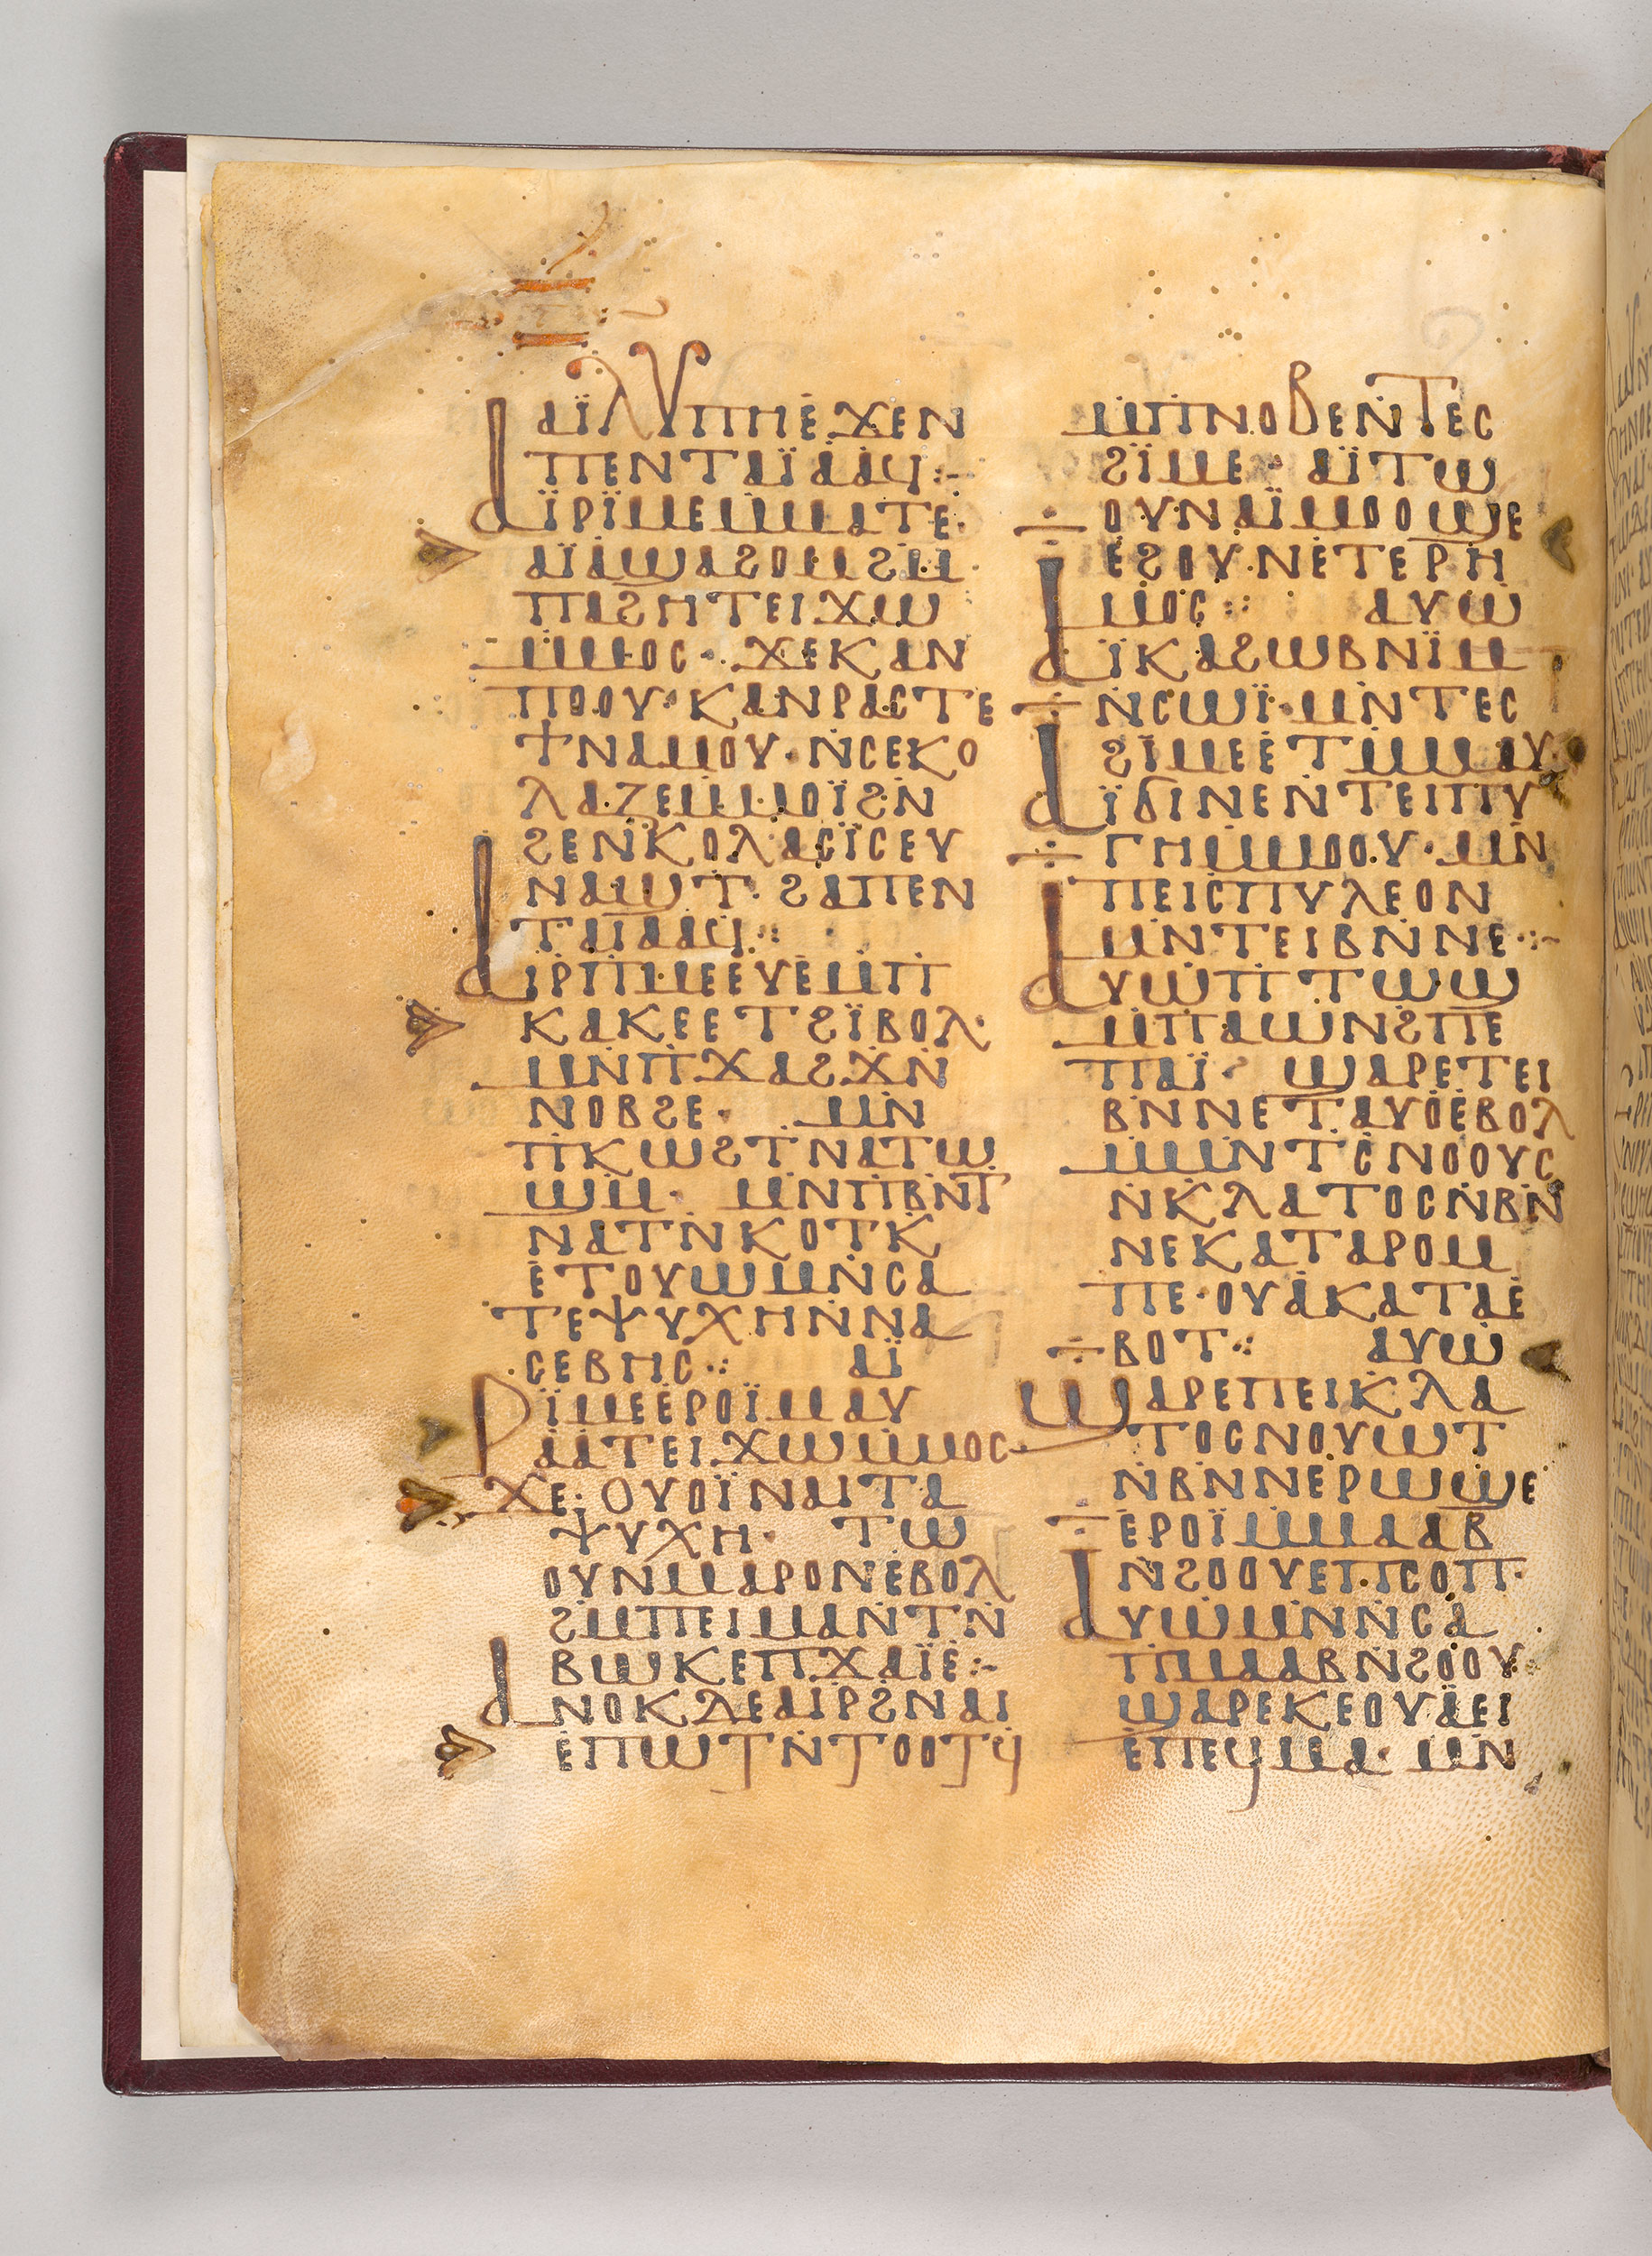 ⲁⲓ̈ⲗⲩⲡⲏⲉϫⲉⲛ
ⲡⲉⲛⲧⲁⲓ̈ⲁⲁϥ:–
ⲁⲓ̈ⲣⲓ̈ⲙⲉⲙ̇ⲙⲁⲧⲉ·
ⲁⲓ̈ⲁϣⲁϩⲟⲙϩⲙ̇·
ⲡⲁϩⲏⲧⲉⲓϫⲱ
ⲙ̇ⲙⲟⲥ· ϫⲉⲕⲁⲛ
ⲡⲟⲟⲩ·ⲕⲁⲛⲣⲁⲥⲧⲉ
ϯⲛⲁⲙⲟⲩ·ⲛ̇ⲥⲉⲕⲟ
ⲗⲁⲍⲉⲙ̇ⲙⲟⲓ̈ϩⲛ̇
ϩⲉⲛⲕⲟⲗⲁⲥⲓ̈ⲥⲉⲩ
ⲛⲁϣⲧ·ϩⲁⲡⲉⲛ
ⲧⲁⲓ̈ⲁⲁϥ:·
ⲁⲓⲣⲡ̇ⲙⲉⲉⲩⲉⲙ̇ⲡ
ⲕⲁⲕⲉⲉⲧϩⲓ̈ⲃⲟⲗ·
ⲙⲛ̇ⲡϫⲁϩϫⲛ̇
ⲛⲟⲃϩⲉ· ⲙⲛ̇
ⲡⲕⲱϩⲧⲛⲁⲧⲱ
ϣⲙ̇· ⲙⲛ̇ⲡⲃⲛ̇ⲧ
ⲛⲁⲧⲛ̇ⲕⲟⲧⲕ̇
ⲉⲧⲟⲩⲱⲙⲛ̇ⲥⲁ
ⲧⲉⲯⲩⲭⲏⲛ̇ⲛⲁ
ⲥⲉⲃⲏⲥ·: ⲁⲓ̈
ⲣⲓ̈ⲙⲉⲉⲣⲟⲓ̈ⲙⲁⲩ
ⲁⲁⲧⲉⲓϫⲱⲙ̇ⲙⲟⲥ
ϫⲉ·ⲟⲩⲟⲓ̈ⲛⲁⲓⲧⲁ
ⲯⲩⲭⲏ· ⲧⲱ
ⲟⲩⲛⲙⲁⲣⲟⲛⲉⲃⲟⲗ
ϩⲙ̇ⲡⲉⲓⲙⲁⲛ̇ⲧⲛ̇
ⲃⲱⲕⲉⲡϫⲁⲓ̈ⲉ:–
ⲁⲛⲟⲕⲇⲉⲁⲓⲣϩⲛⲁⲓ
ⲉⲡⲱⲧⲛ̇ⲧⲟⲟⲧϥ
ⲙ̇ⲡⲛⲟⲃⲉⲛ̇ⲧⲉⲥ
ϩⲓ̈ⲙⲉ· ⲁⲓ̈ⲧⲱ
ⲟⲩⲛⲁⲓ̈ⲙⲟⲟϣⲉ
ⲉϩⲟⲩⲛⲉⲧⲉⲣⲏ
ⲙⲟⲥ:· ⲁⲩⲱ
ⲁⲓ̈ⲕⲁϩⲱⲃⲛⲓ̈ⲙ
ⲛ̇ⲥⲱⲓ̈·ⲙⲛ̇ⲧⲉⲥ
ϩⲓ̈ⲙⲉⲉⲧⲙ̇ⲙⲁⲩ·
ⲁⲓ̈ϭⲓⲛⲉⲛⲧⲉⲓⲡⲩ
ⲅⲏⲙ̇ⲙⲟⲟⲩ·ⲙⲛ̇
ⲡⲉⲓⲥⲡⲩⲗⲉⲟⲛ
ⲙⲛ̇ⲧⲉⲓⲃⲛ̇ⲛⲉ·:–
ⲁⲩⲱⲡⲧⲱϣ
ⲙ̇ⲡⲁⲱⲛϩⲡⲉ
ⲡⲁⲓ̈· ϣⲁⲣⲉⲧⲉⲓ
ⲃⲛ̇ⲛⲉⲧⲁⲩⲟⲉⲃⲟⲗ
ⲙ̇ⲙⲛ̇ⲧⲥⲛⲟⲟⲩⲥ
ⲛ̇ⲕⲗⲁⲧⲟⲥⲛ̇ⲃⲛ̇
ⲛⲉⲕⲁⲧⲁⲣⲟⲙ
ⲡⲉ·ⲟⲩⲁⲕⲁⲧⲁⲉ
ⲃⲟⲧ:· ⲁⲩⲱ
ϣⲁⲣⲉⲡⲉⲓⲕⲗⲁ
ⲧⲟⲥⲛⲟⲩⲱⲧ
ⲛ̇ⲃⲛ̇ⲛⲉⲣⲱϣⲉ
ⲉⲣⲟⲓ̈ⲙ̇ⲙⲁⲁⲃ
ⲛ̇ϩⲟⲟⲩⲉⲓ·ⲡⲥⲟⲡ·
ⲁⲩⲱⲙⲛ̇ⲛ̇ⲥⲁ
ⲡⲙⲁⲁⲃⲛ̇ϩⲟⲟⲩ·
ϣⲁⲣⲉⲕⲉⲟⲩⲁⲉⲓ
ⲉⲡⲉϥⲙⲁ· ⲙⲛ̇